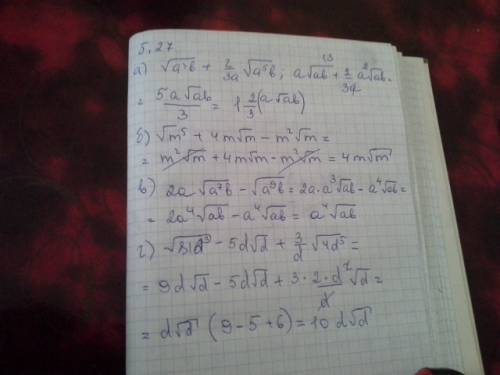 5.27
а) √a³b + 2/3a √a⁵b; a√ab \3 + 2/3a a²√ab =
= 5a√ab/3 = 1 2/3 (a√ab)
б) √m⁵ + 4m√m - m²√m =
= m²√m + 4m√m - m²√m = 4m√m
в) 2a√a⁷b - √a⁹b = 2a·a³√ab - a⁴√ab =
= 2a⁴√ab - a⁴√ab = a⁴√ab
г) √81d³ - 5d√d + 3/d √4d⁵ =
= 9d√d - 5d√d + 3·2·d²/d √d =
= d√d (9-5+6) = 10d√d